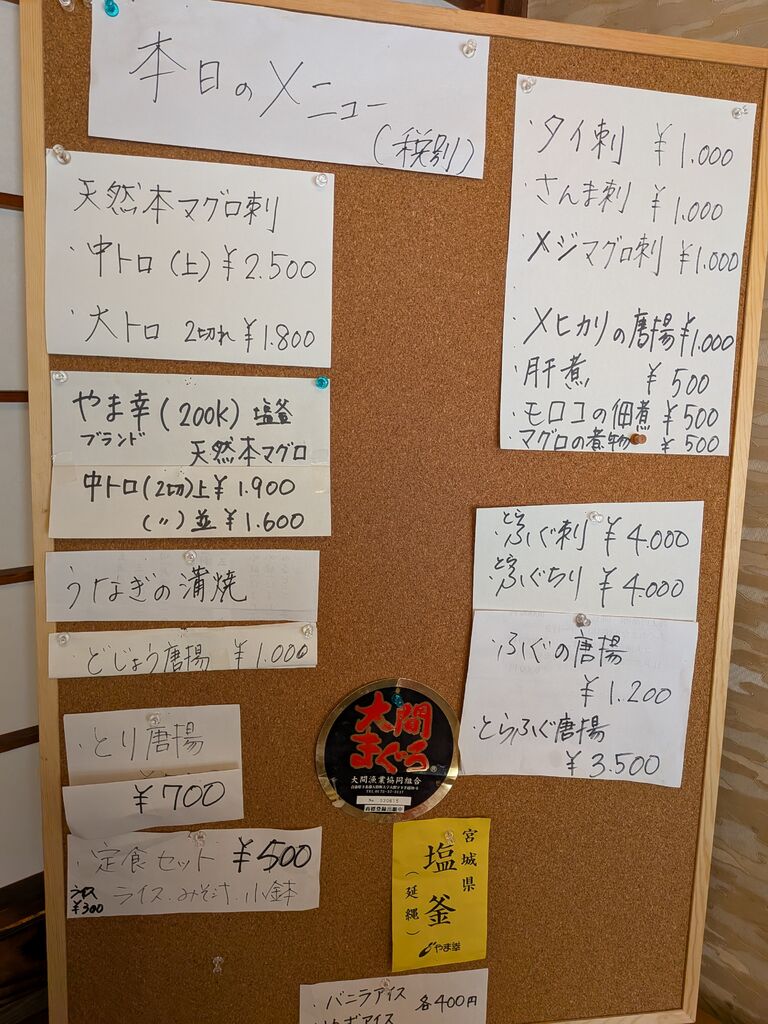 本日のメニュー
(税別)
天然本マグロ刺
・中トロ(上)¥2.500
・大トロ 2切れ ¥1.800
やま幸(200K)塩釜
ブランド 天然本マグロ
中トロ(2切)上¥1.900
(〃)並¥1.600
うなぎの蒲焼
・どじょう唐揚 ¥1.000
・とり唐揚
¥700
・定食セット ¥500
ライス・みそ汁・小鉢
¥300
・タイ刺 ¥1.000
・さんま刺 ¥1.000
・メジマグロ刺 ¥1.000
・メヒカリの唐揚¥1.000
・肝煮 ¥500
・モロコの佃煮 ¥500
・マグロの煮物 ¥500
・とらふぐ刺 ¥4.000
・とらふぐちり ¥4.000
・ふぐの唐揚
¥1.200
とらふぐ唐揚
¥3.500
大間
まぐろ®
大間漁業協同組合
商標登録出願中
宮城県
塩釜
(延縄)
やま幸
・バニラアイス 各400円